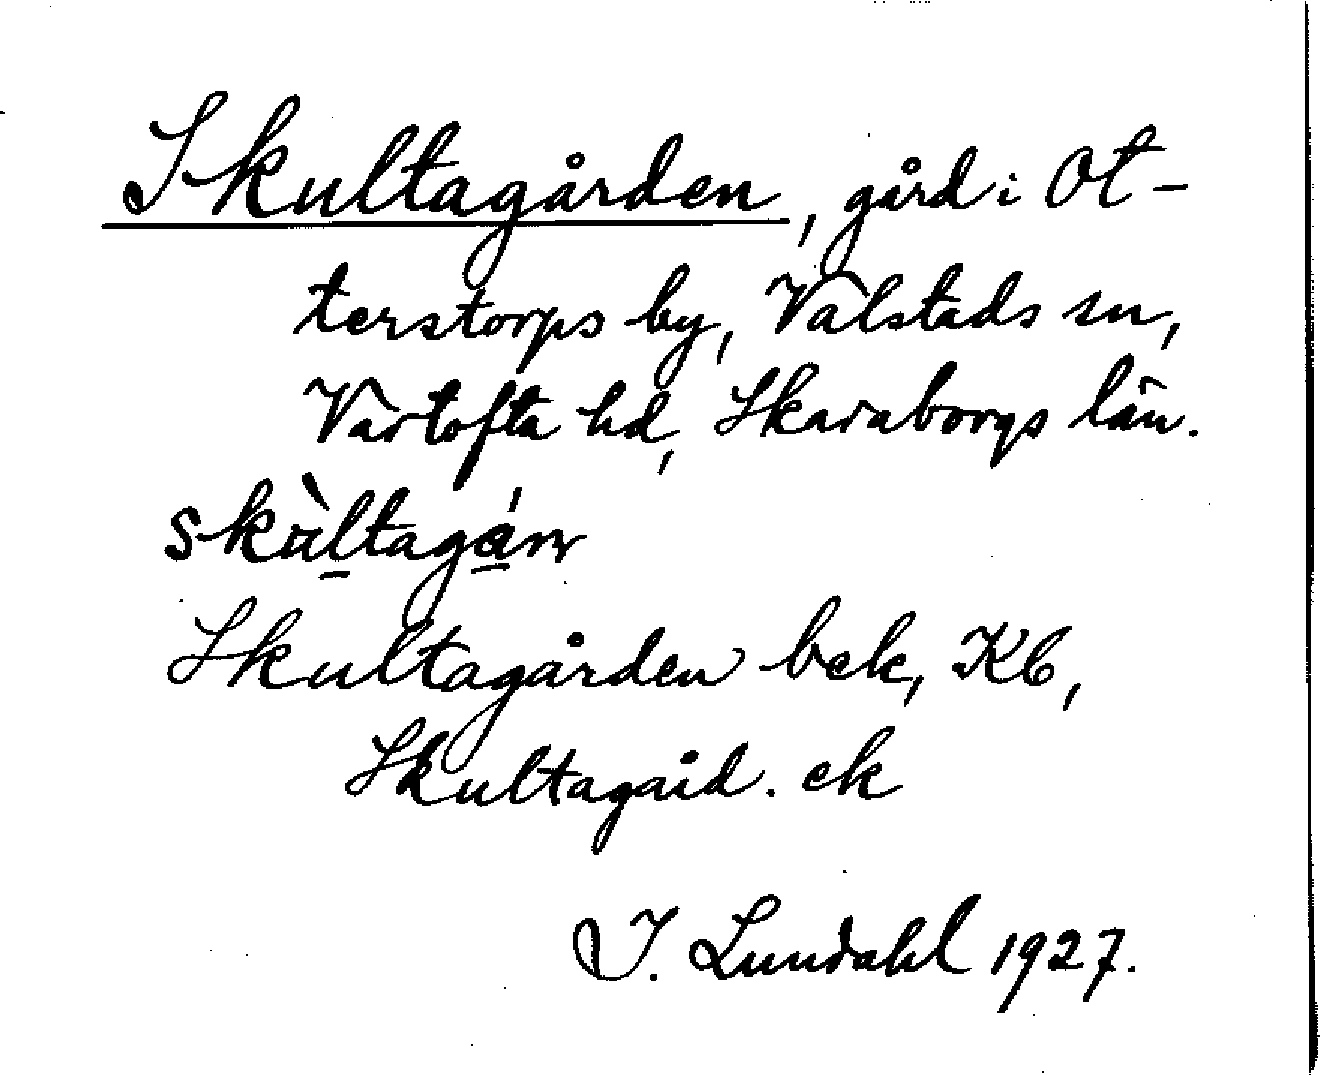 Skultagården, gård i Ot-
terstorps by, Valstads sn,
Vartofta hd, Skaraborgs län.
skùltagán
Skultagården bek, Kb,
Skultagård. ek
J. Lundahl 1927.